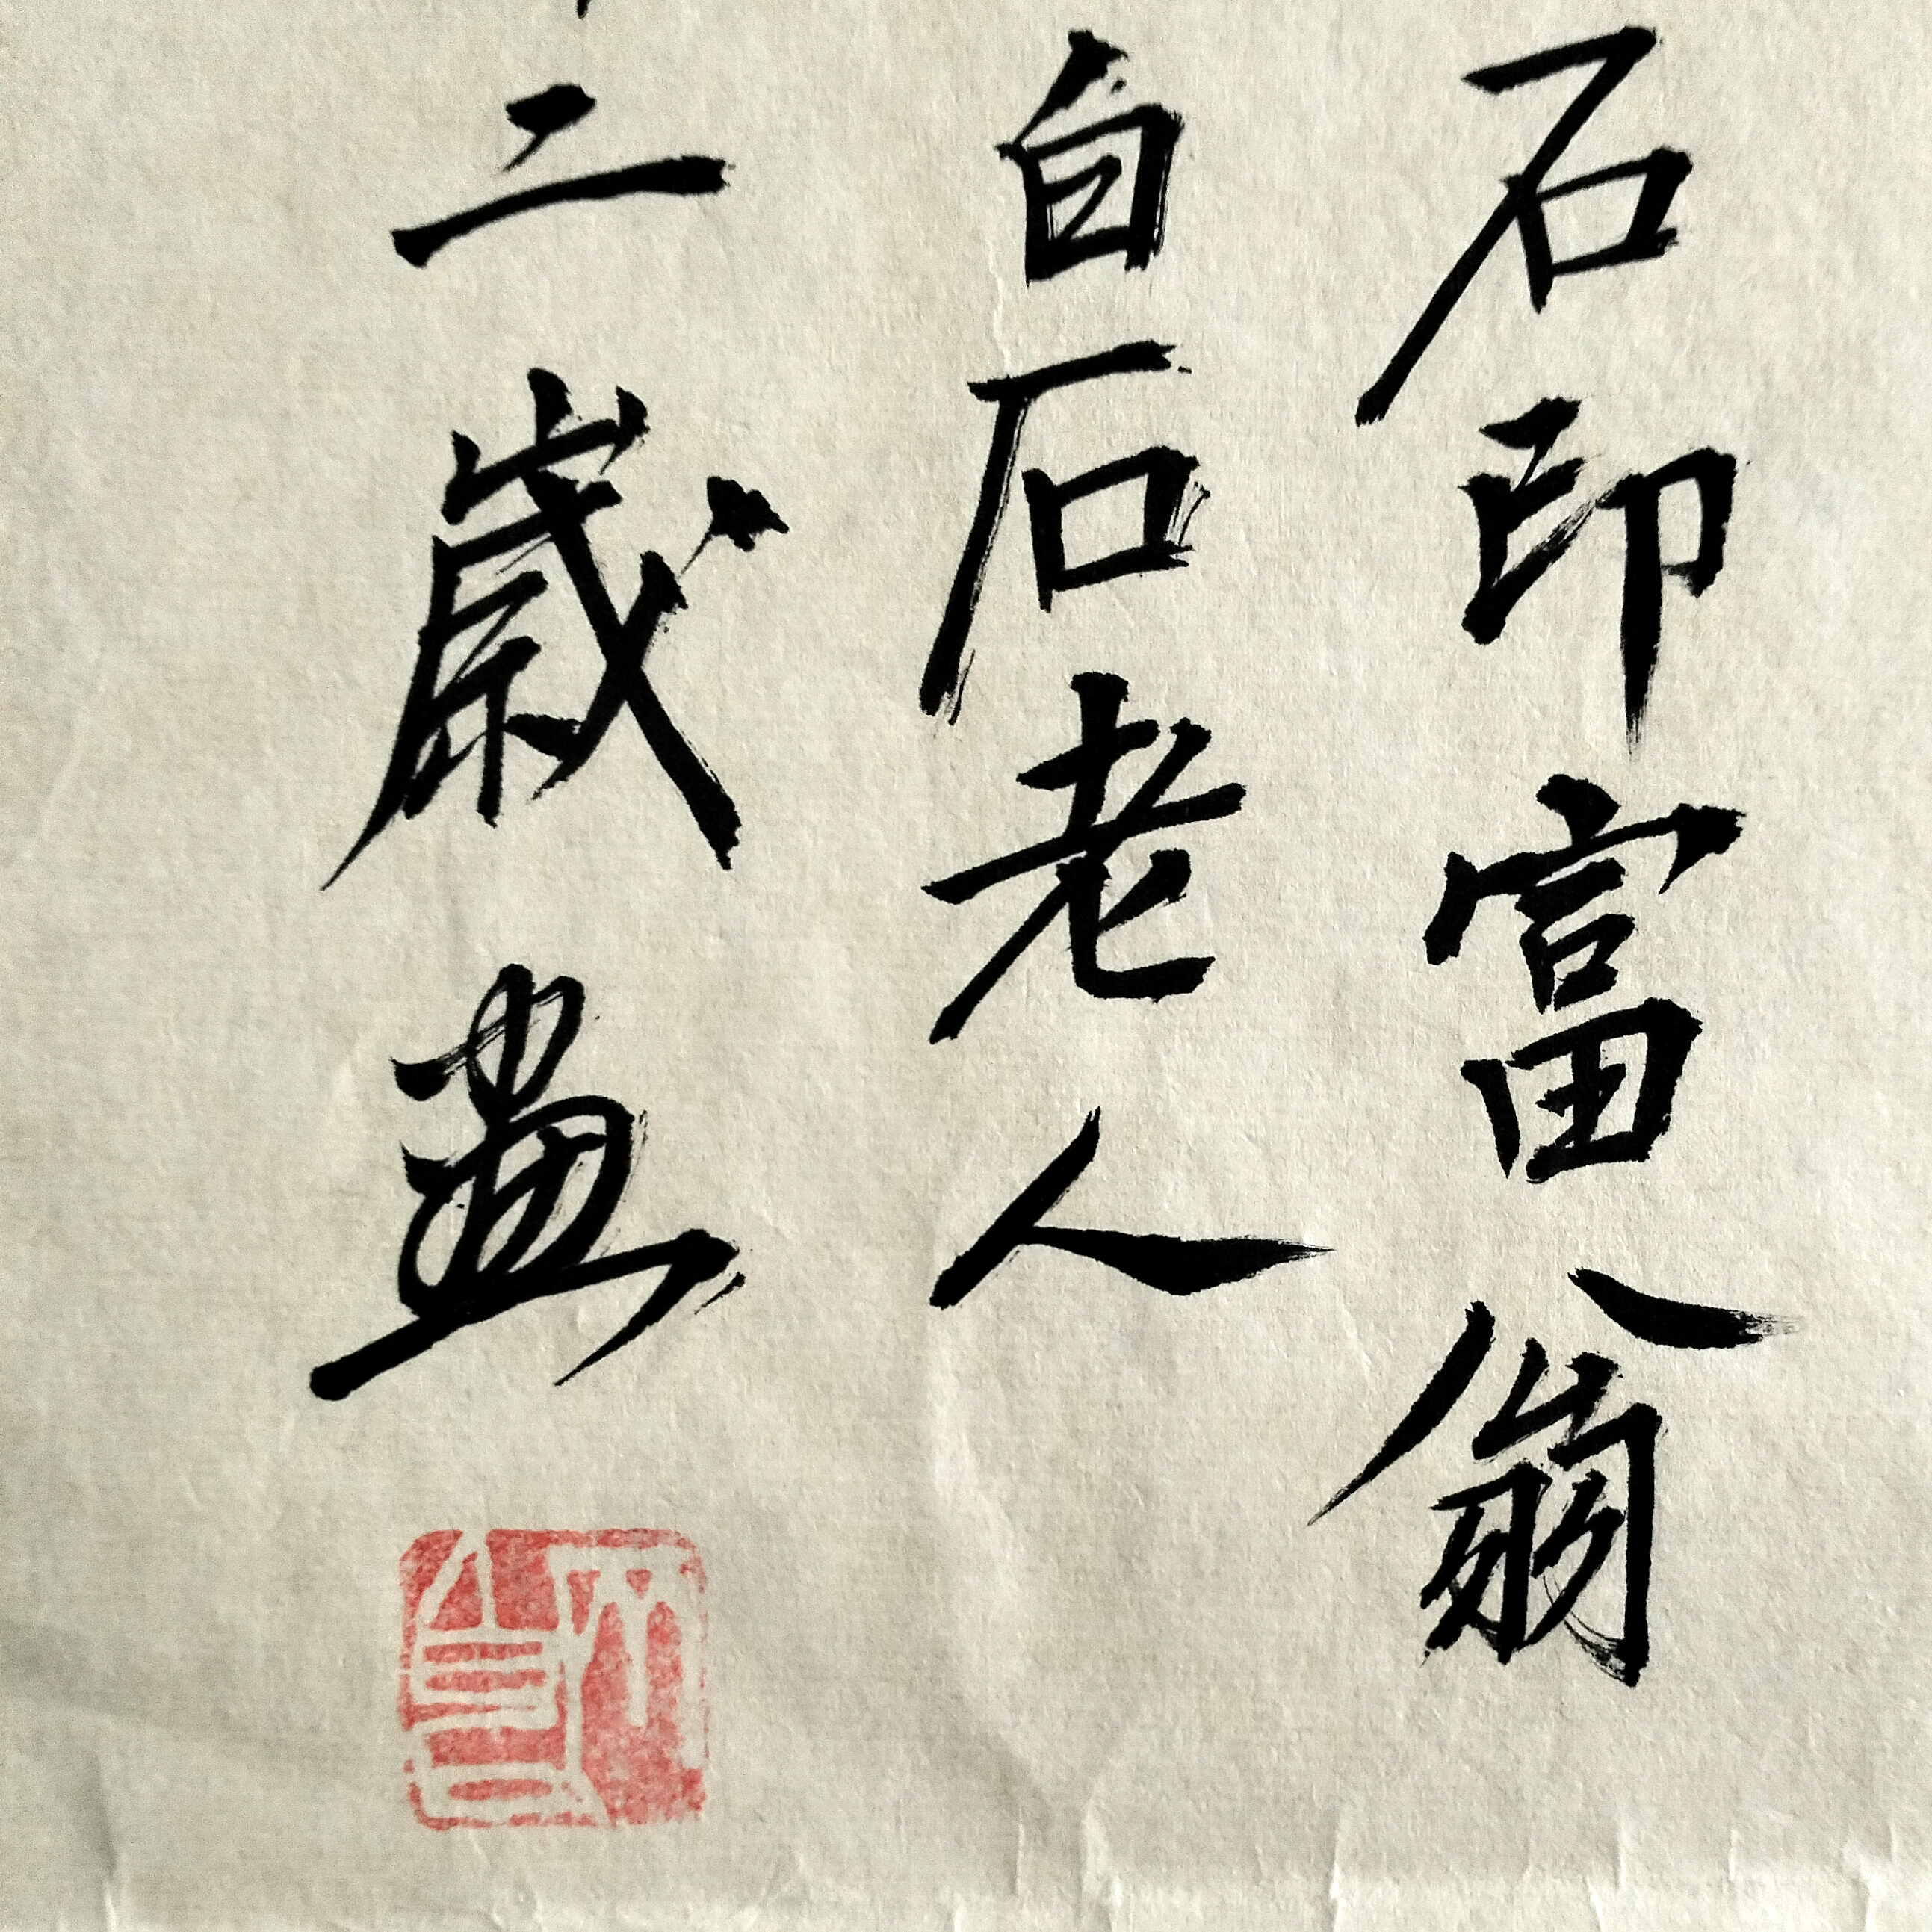 石印富翁
白石老人
二歲畫